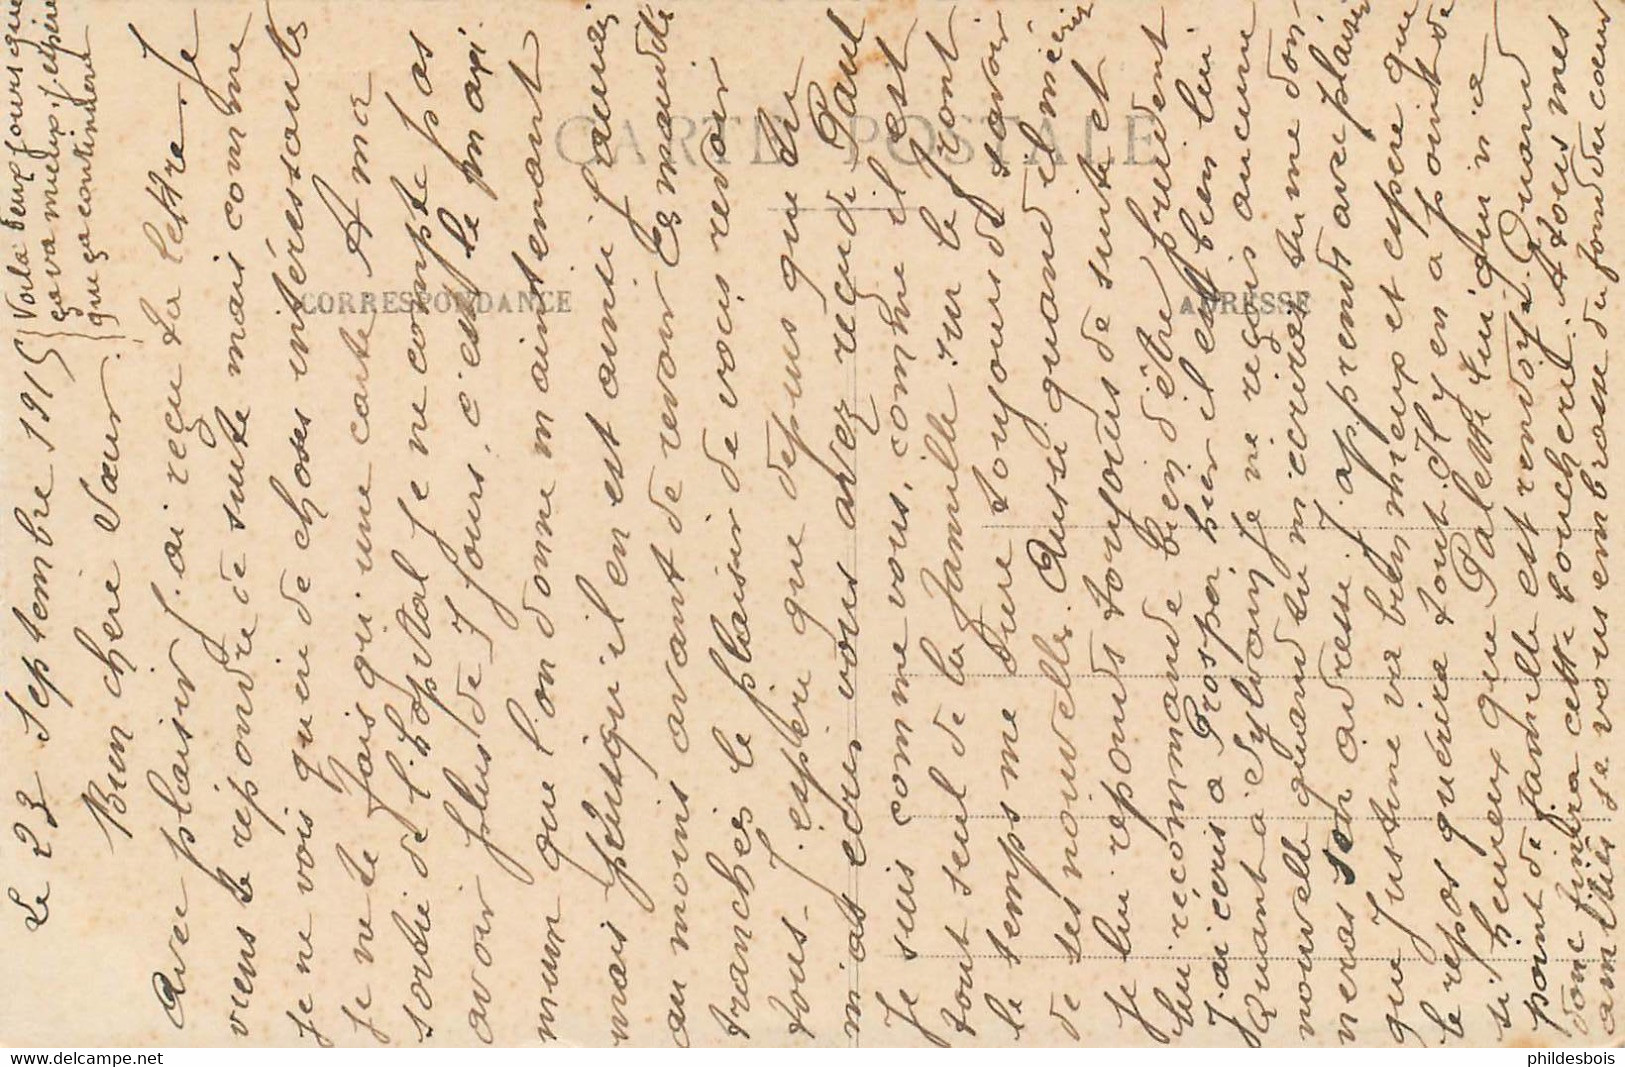 Le 23 Septembre 1915
Voilà deux jours que
ça va mieux, j'espère
que ça continuera
Bien chère Sœur
Avec plaisir j'ai reçu ta lettre. Je
viens te répondre de suite mais comme
je ne vois guère de choses intéressantes
je ne te fais qu'une carte. A ma
sortie de l'hôpital je ne compte pas
avoir plus de 7 jours, c'est le maxi
mum que l'on donne maintenant
mais puisqu'il en est ainsi j'aurai
au moins avant de revoir les maudites
tranchées le plaisir de vous revoir
tous. J'espère que depuis que tu
m'as écris vous avez reçu de Paul
Je suis comme vous, comme il est
tout seul de la famille sur le front
le temps me dure toujours de savoir
de ses nouvelles. Aussi quand il m'écrit
je lui réponds toujours de suite et
lui récommande bien d'être prudent
J'ai écris à Prosper hier il est bien lui
Quant à Sylvain je ne reçois aucune
nouvelle quand tu m'écriras tu me don
neras son adresse. J'apprends avec plaisir
que Justine va bien mieux et espère que
le repos guérira tout. Il y en a point de
si heureux que Palette lui qui n'a
point de famille est renvoyé. Quand
donc finira cette boucherie. A tous mes
amitiés je vous embrasse du fond du cœur
CARTE POSTALE
CORRESPONDANCE
ADRESSE
phildesbois